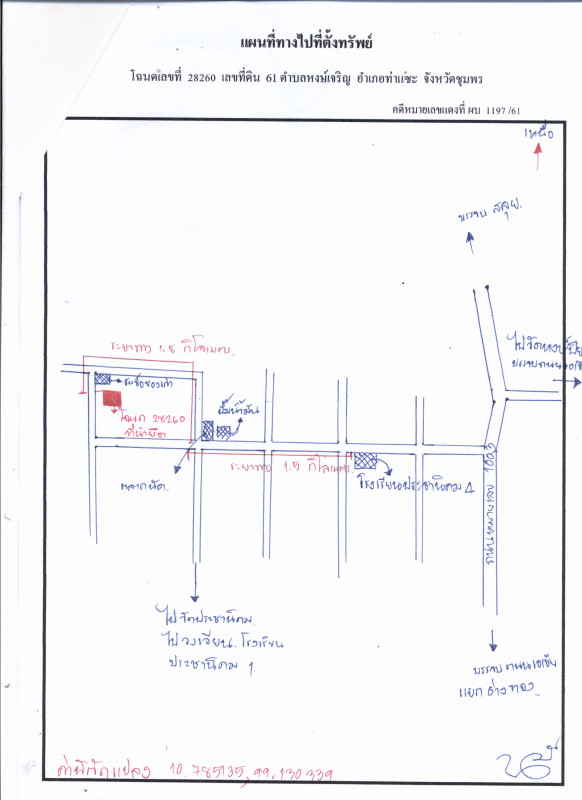 แผนที่ทางไปที่ตั้งทรัพย์
โฉนดเลขที่ 28260 เลขที่ดิน 61 ตำบลหงษ์เจริญ อำเภอท่าแซะ จังหวัดชุมพร
คดีหมายเลขแดงที่ ผบ 1197/61
เหนือ
บรรจบ สลุย.
ไปวัดหงษ์ปิย
บรรจบถนนเอเซีย
ระยะทาง 1.8 กิโลเมตร.
รับซื้อของเก่า
โฉนด 28260
ที่นำยึด
ปั๊มน้ำมัน
ระยะทาง 1.5 กิโลเมตร.
ตลาดนัด.
โรงเรียนประชานิคม 4
ถนนหมายเลข 1003
ไปวัดประชานิคม.
ไปวงเวียน. โรงเรียน
ประชานิคม 1
บรรจบ ถนนเอเซีย
แยกอ่างทอง.
ค่าพิกัดแปลง 10.785135, 99.130339